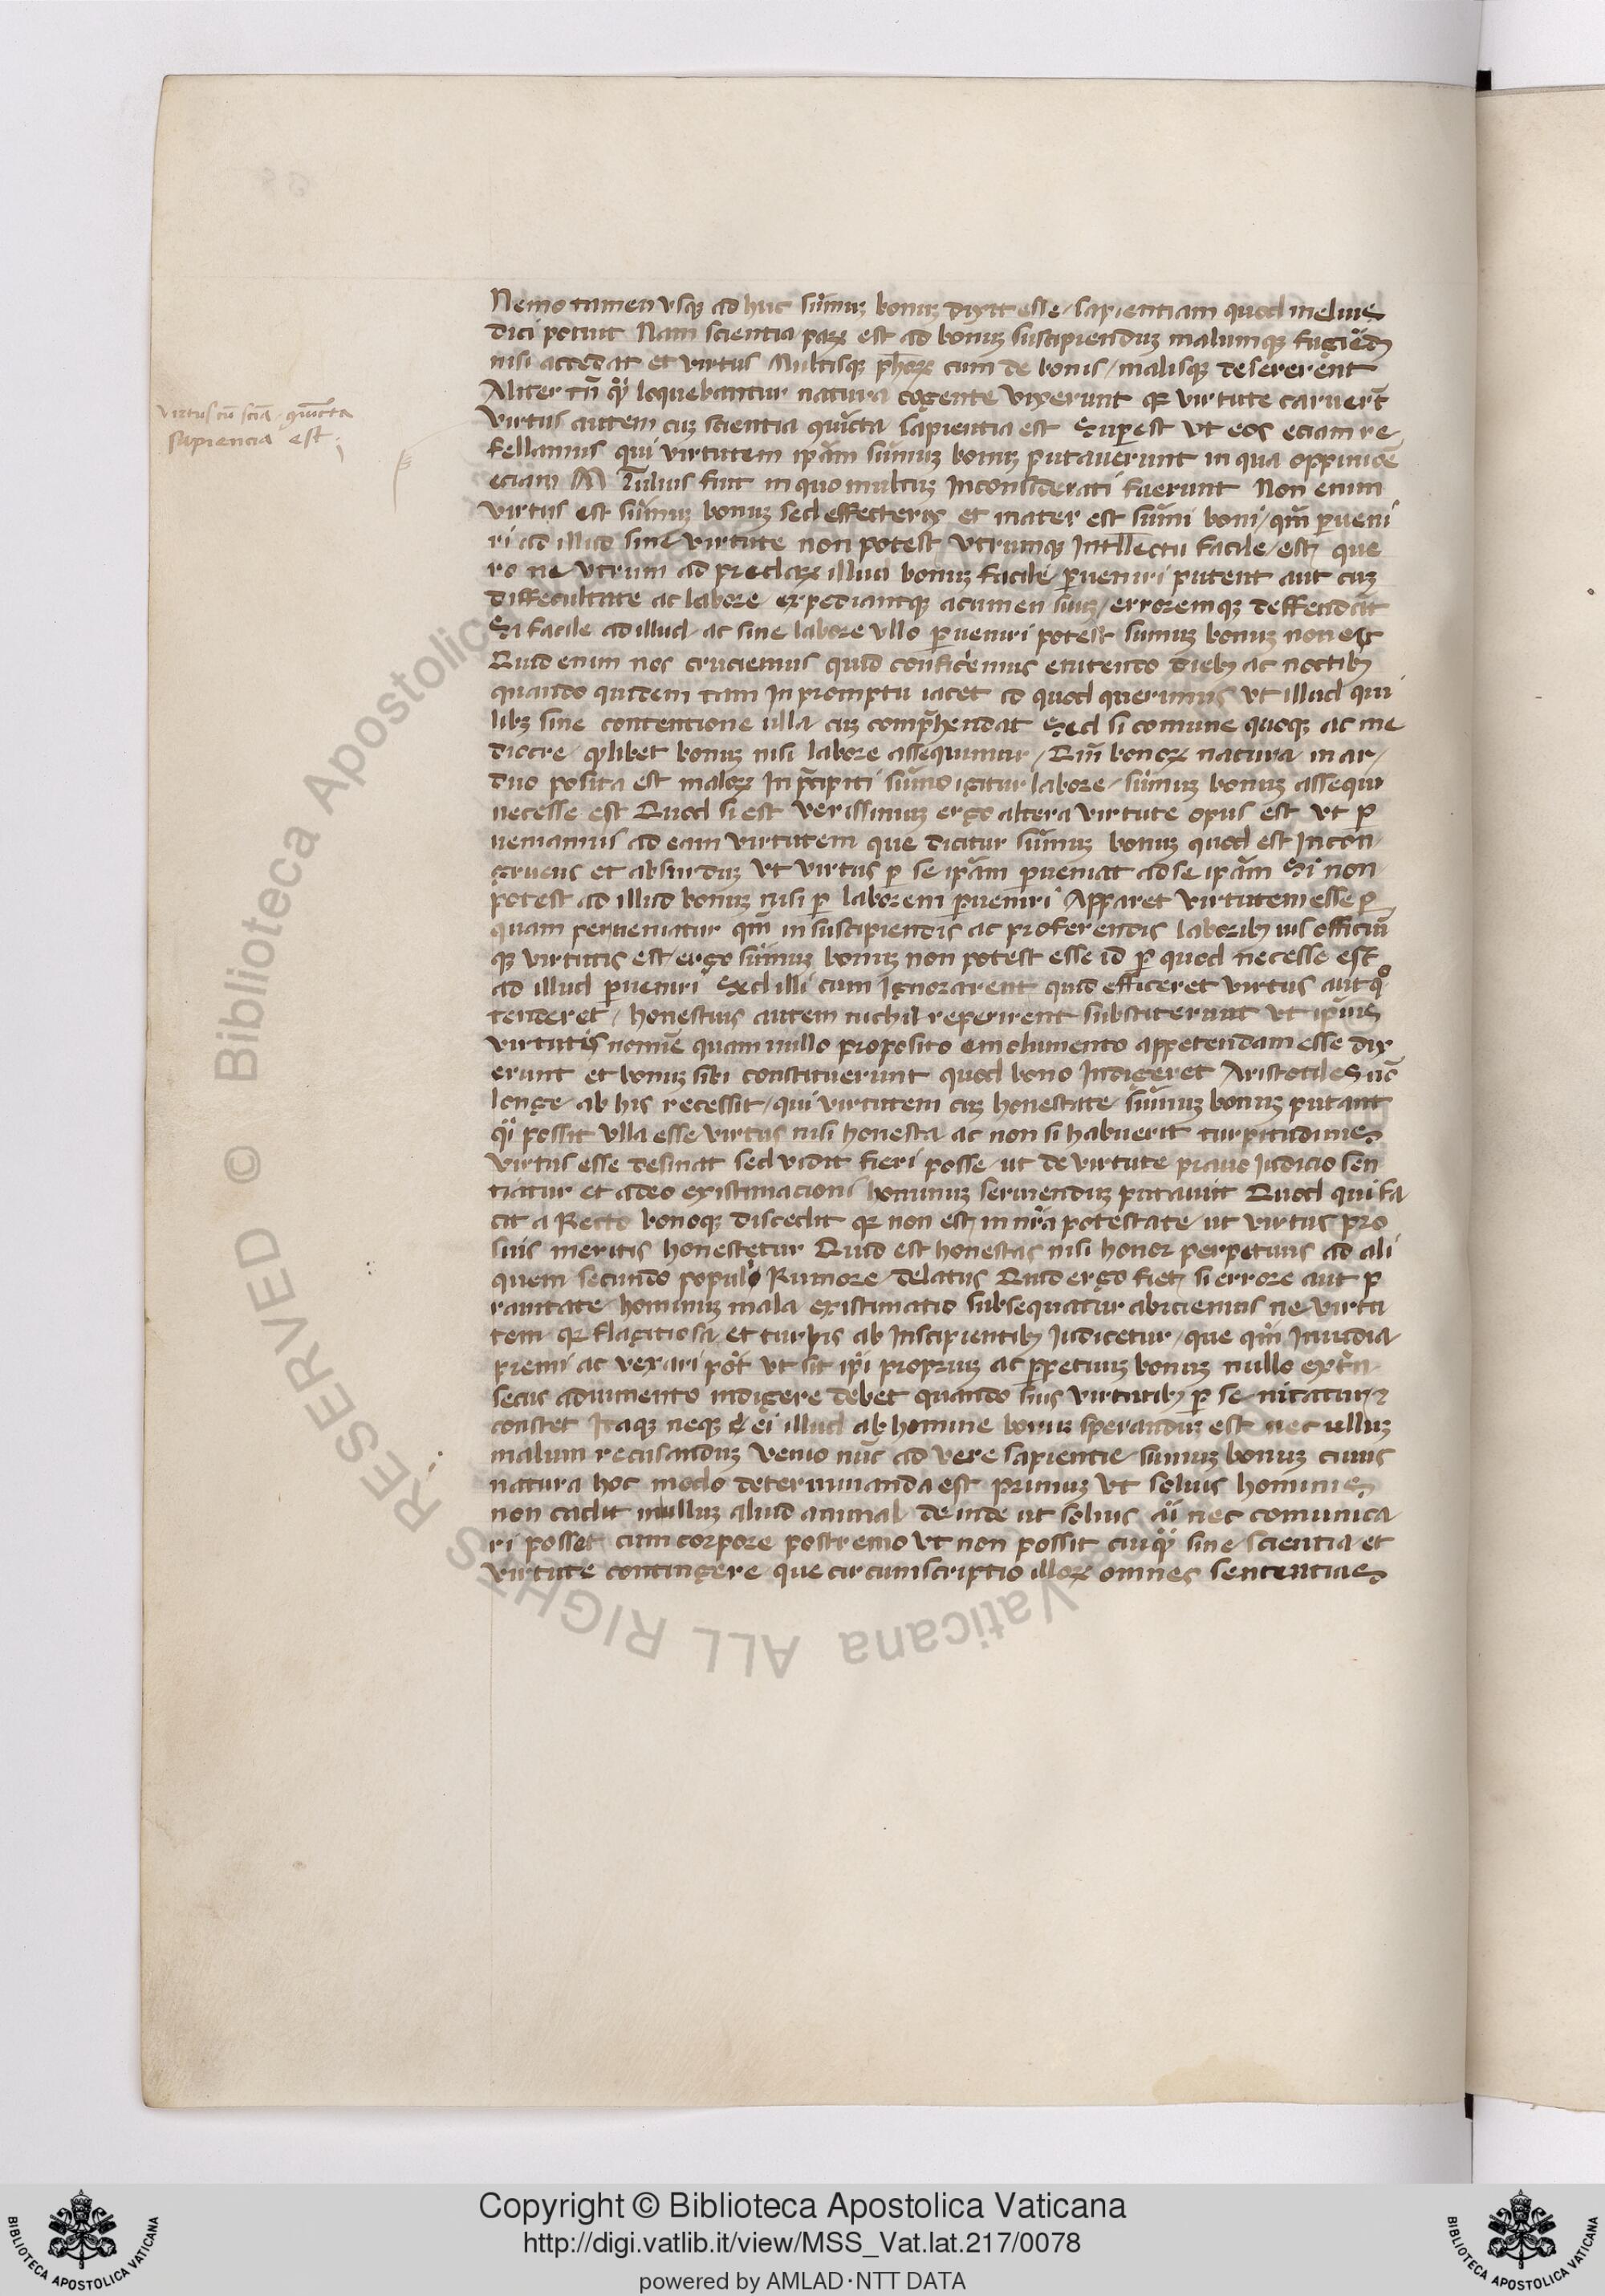 Nemo tamen vsq; ad huc sūmuʒ bonuʒ dixit esse sapientiam quod melius
dici potuit Nam scientia paꝝ est ad bonuʒ suscipienduʒ malumq; fugiēdʒ
nisi accedat et virtus Multisq; ph̄oꝝ cum de bonis / malisq; desererēnt
Aliter tn̄ qͣ loquebantur natura cogente vixerunt qꝛ virtute caruert̄
virtus cū scīa quīcta
sapiencia est
virtus autem cuʒ scientia quīcta sapientia est Suꝑest vt eos eciam re
fellamus qui virtutem ip̄am sūmuʒ bonuʒ putauerunt in qua oppinioē
eciam M Tulius fuit in quo multuʒ Inconsiderati fuerunt Non enim
virtus est sūmuʒ bonuʒ sed effecterix et mater est sūmi boni / qm̄ ꝑueni
ri ad illud sine virtute non potest Vtrumq; Intllectu facile est que
ro ne vtrum ad preclaꝝ illud bonuʒ facile ꝑueniri putent aut cuʒ
diffecultate ac labore expediantq; acumen suuʒ / erroremq; deffendāt
Si facile ad illud ac sine labore vllo ꝑueniri potest sumuʒ bonuʒ non est
Quid enim nos cruciemus quid conficemus enitendo diebʒ ac noctibʒ
quando quidem tam In promptu iacet id quod querimus vt illud qui
libʒ sine contentione ulla cuʒ comp̄hendat Sed si comune quoq; ac me
diocre qͥlibet bonuʒ nisi labore assequimur / Qm̄ bonoꝝ natura in ar/
duo posita est maloꝝ In p̄cipiti sūmo igitur labore sūmuʒ bonuʒ assequi
necesse est Quod si est verissimuʒ ergo altera virtute opus est vt ꝑ
ueniamus ad eam virtutem que dicitur sūmuʒ bonuʒ quod est Incon
gruens et absurduʒ vt virtus ꝑ se ip̄am ꝑueniat ad se ip̄am Si non
potest ad illud bonuʒ nisi ꝑ laborem ꝑueniri Apparet virtutem esse ꝑ
quam perueniatur qm̄ in suscipiendis ac proferendis laboribʒ uis officiū
q; virtutis est ergo sūmuʒ bonuʒ non potest esse id ꝑ quod necesse est
ad illud ꝑueniri Sed illi cum Ignorarent quid efficeret virtus aut qͦ
tenderet / honestius autem nichil reperirent substiterunt vt ip̄ius
virtutis nomīe quam nullo proposito emolumento appetendam esse dix
erunt et bonuʒ sibi constituerunt quod bono Indigeret Aristotiles nō
longe ab his recessit / qui virtutem cuʒ honestate sūmuʒ bonuʒ putant
qͣi possit vlla esse virtus nisi honesta ac non si habuerit turpitudines
virtus esse desinat sed vidit fieri posse ut de virtute prauo Iudicio sen
tiatur et adeo existimacioni hominuʒ seruienduʒ putauit Quod qui fa
cit a Recto bonoq; discedit qꝛ non est in nr̄a potestate ut virtus pro
suis meritis honestetur Quid est honestas nisi honor perpetuus ad ali
quem secundo populo Rumore delatus Quid ergo fiet si errore aut ꝑ
rauitate hominuʒ mala existimatio subsequatur abiciemus ne virtu
tem qꝛ flagitiosa et turpis ab Inscipientibʒ Iudicetur / que qm̄ Inuidia
premi ac vexari pōt vt sit ip̄i propriuʒ ac ꝑpetuuʒ bonuʒ nullo ext̄n
secus adiumento indigere debet quando suis virtutibʒ ꝑ se nitatur ⁊
constet Itaq; neq; ei illud ab homine bonuʒ speranduʒ est nec ulluʒ
malum recusanduʒ Venio nūc ad vere sapientie sumuʒ bonuʒ cuius
natura hoc modo determinanda est primuʒ vt solius hominis
non cadit in ulluʒ aliud animal deinde ut solius aī nec comunica
ri posset cum corpore postremo vt non possit cuiqͣ sine scientia et
virtute contingere que circumscriptio illoꝝ omnes sententias
Copyright © Biblioteca Apostolica Vaticana
http://digi.vatlib.it/view/MSS_Vat.lat.217/0078
powered by AMLAD·NTT DATA
BIBLIOTECA APOSTOLICA VATICANA
BIBLIOTECA APOSTOLICA VATICANA
© Biblioteca Apostolica Vaticana ALL RIGHTS RESERVED